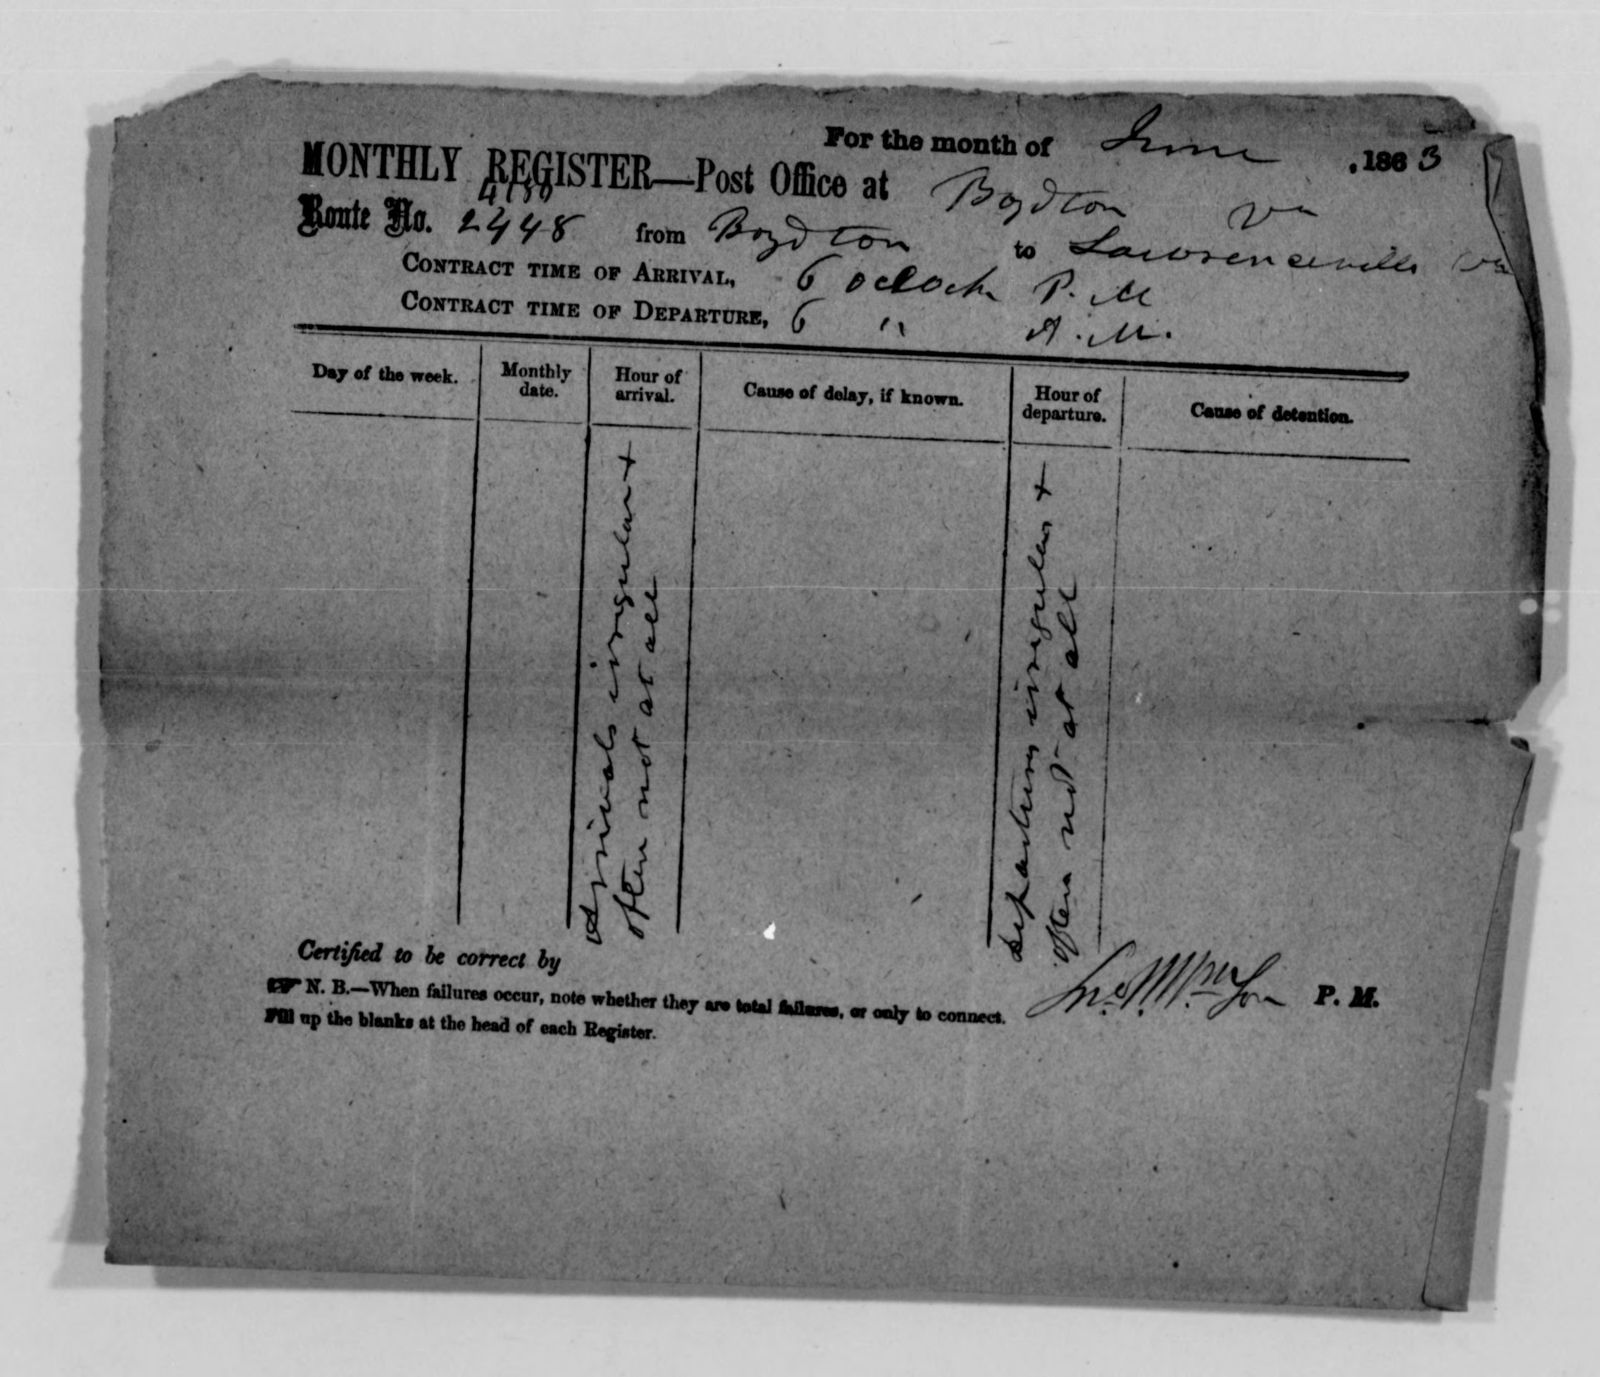 For the month of June , 1863
MONTHLY REGISTER—Post Office at Boydton Va
Route No. 2448 from Boydton to Lawrenceville Va
CONTRACT TIME OF ARRIVAL, 6 oclock P. M
CONTRACT TIME OF DEPARTURE, 6 " A. M.
Day of the week. Monthly date. Hour of arrival. Cause of delay, if known. Hour of departure. Cause of detention.
Arrivals irregular +
often not at all
Departures irregular +
often not at all
Certified to be correct by
P. M.
☞ N. B.—When failures occur, note whether they are total failures, or only to connect.
Fill up the blanks at the head of each Register.